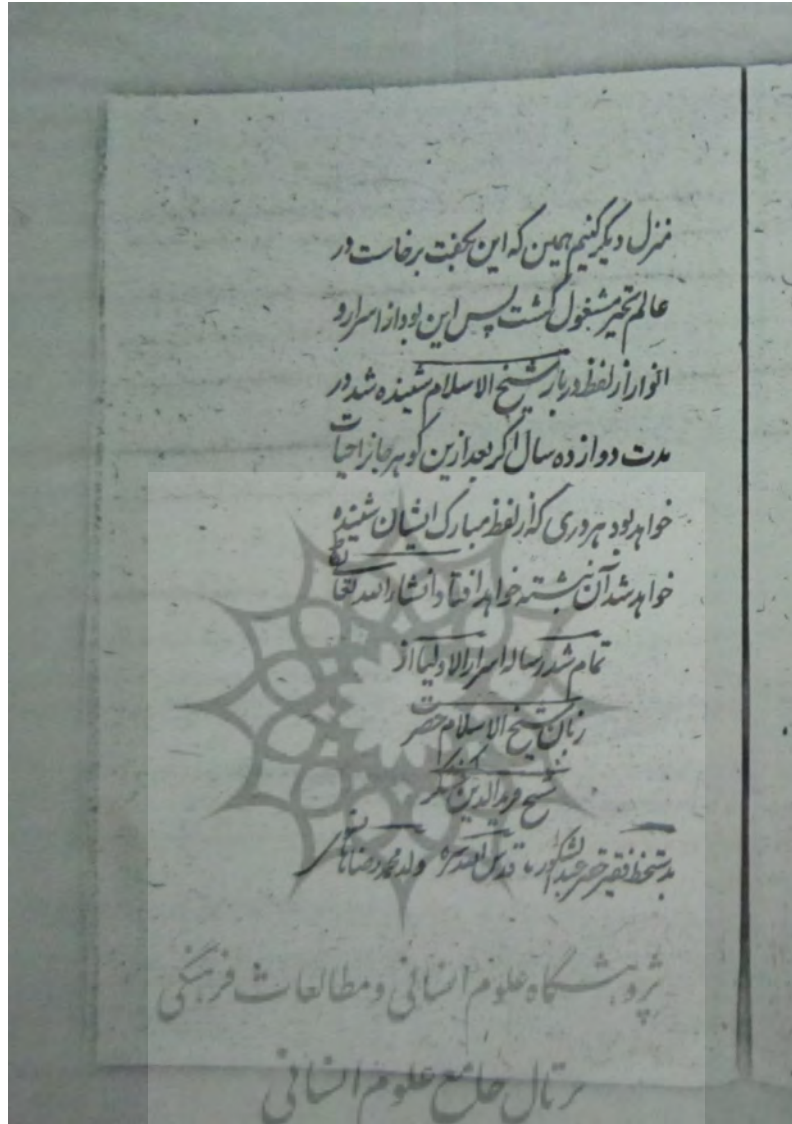 منزل دیگر کنیم همین که این بگفت برخاست در
عالم تحیر مشغول گشت پس این بود از اسرار و
انوار از لفظ دربار شیخ الاسلام شنیده شد در
مدت دوازده سال اگر بعد ازین گوهر جانرا حیات
خواهد بود هر دری که از لفظ مبارک ایشان شنیده
خواهد شد آن نبشته خواهد افتاد انشاء الله تعالی
تمام شد رساله اسرار الاولیا از
زبان شیخ الاسلام حضرت
شیخ فرید الدین شکر
بدستخط فقیر حقیر عبدالشکور قدس الله سره ولد محمد رضا
پژوهشگاه علوم انسانی و مطالعات فرهنگی
پرتال جامع علوم انسانی